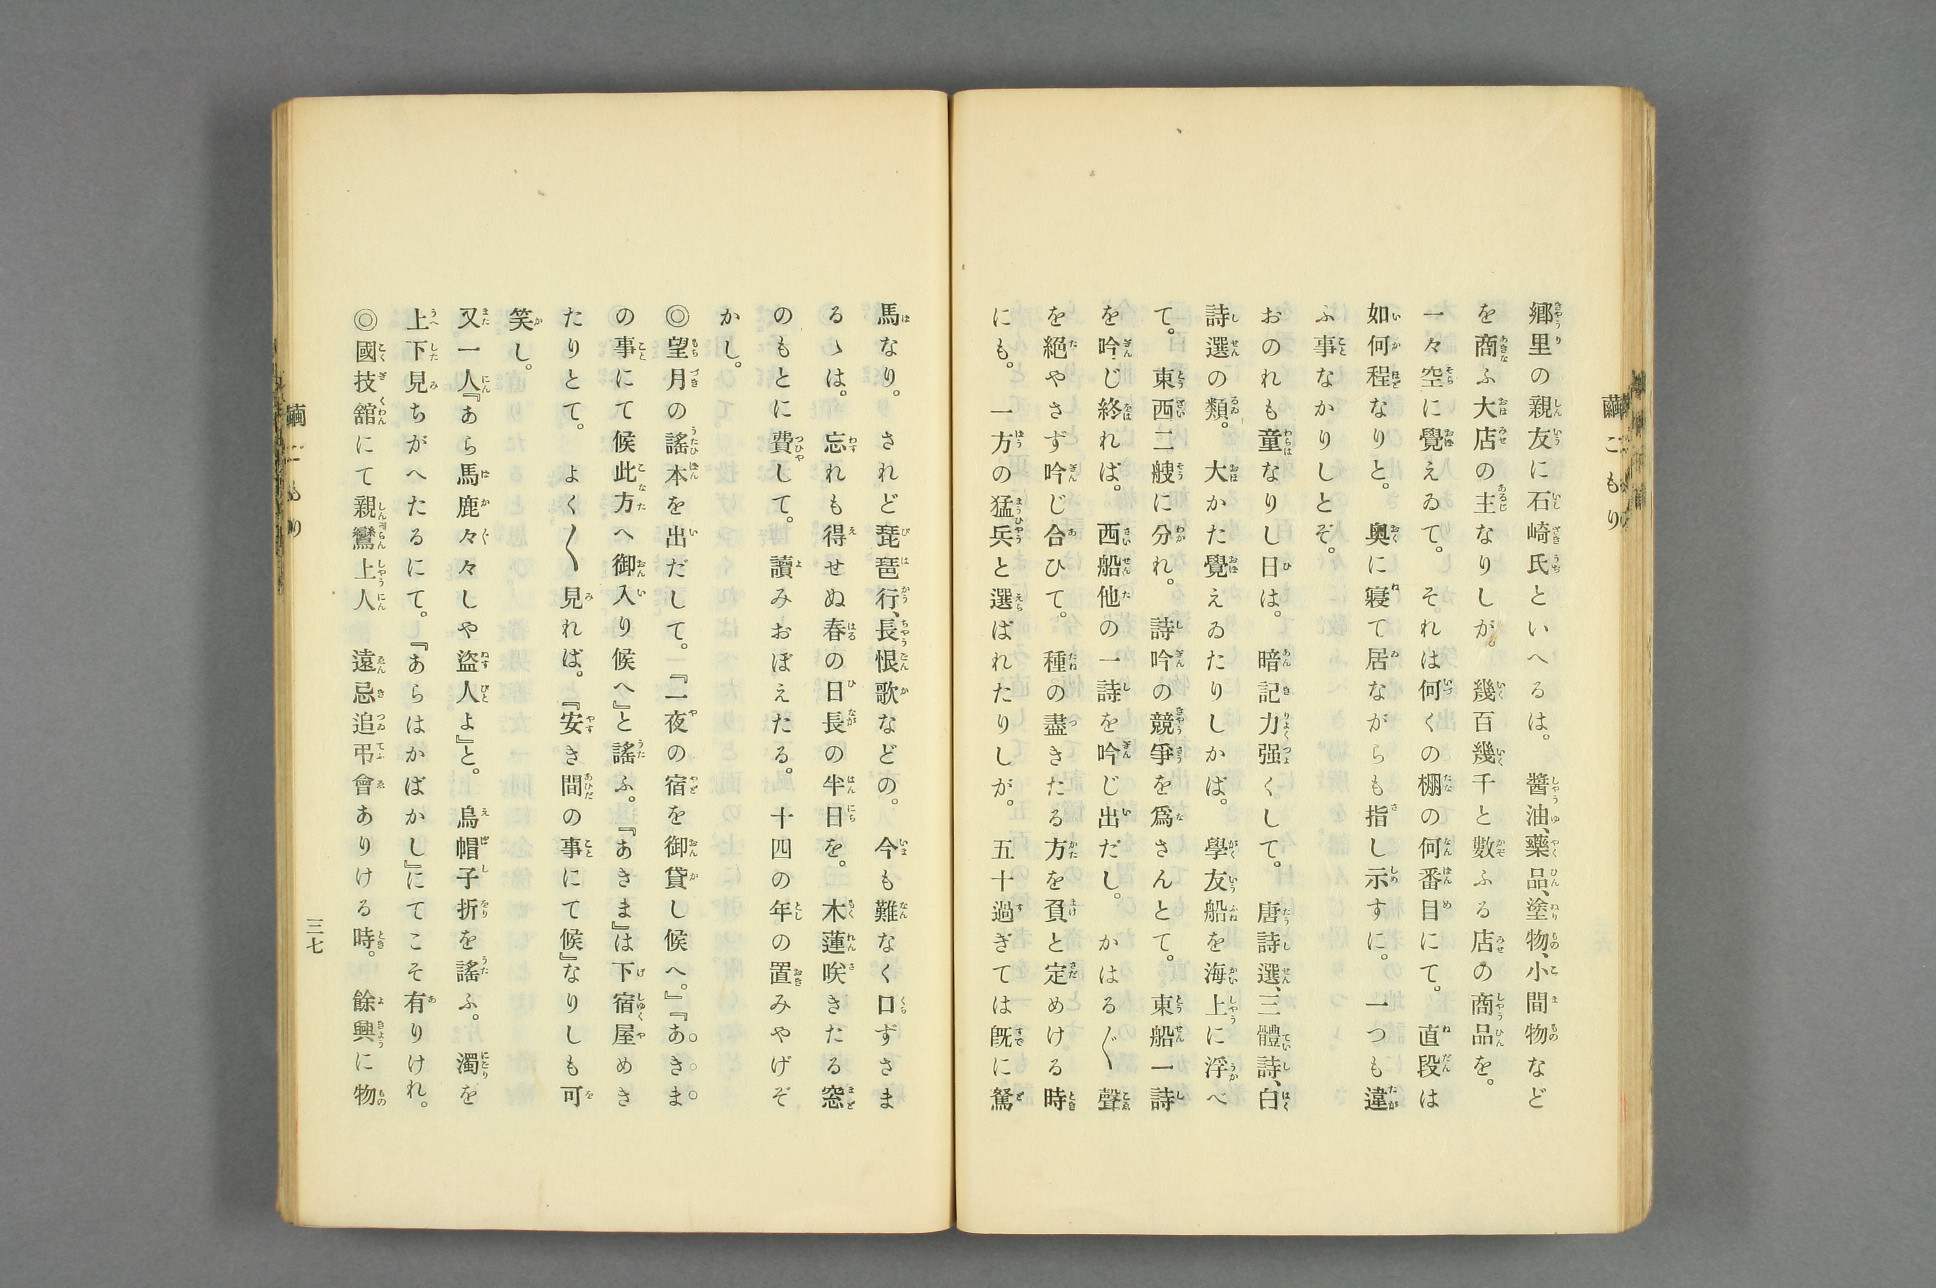 繭ごもり
郷里の親友に石崎氏といへるは。醤油、藥品、塗物、小間物など
を商ふ大店の主なりしが。幾百幾千と數ふる店の商品を。
一々空に覺えゐて。それは何くの棚の何番目にて。直段は
如何程なりと。奧に寢て居ながらも指し示すに。一つも違
ふ事なかりしとぞ。
おのれも童なりし日は。暗記力强くして。唐詩選、三體詩、白
詩選の類。大かた覺えゐたりしかば。學友船を海上に浮べ
て。東西二艘に分れ。詩吟の競爭を爲さんとて。東船一詩
を吟じ終れば。西船他の一詩を吟じ出だし。かはる〲聲
を絕やさず吟じ合ひて。種の盡きたる方を負と定めける時
にも。一方の猛兵と選ばれたりしが。五十過ぎては既に駑
馬なり。されど琵琶行、長恨歌などの。今も難なく口ずさま
るゝは。忘れも得せぬ春の日長の半日を。木蓮咲きたる窓
のもとに費して。讀みおぼえたる。十四の年の置みやげぞ
かし。
◎望月の謠本を出だして。『一夜の宿を御貸し候へ。』『あきま
の事にて候此方へ御入り候へ』と謠ふ。『あきま』は下宿屋めき
たりとて。よく〱見れば。『安き間の事にて候』なりしも可
笑し。
又一人『あら馬鹿々々しや盜人よ』と。烏帽子折を謠ふ。濁を
上下見ちがへたるにて。『あらはかばかし』にてこそ有りけれ。
◎國技舘にて親鸞上人遠忌追弔會ありける時。餘興に物
繭ごもり
三七